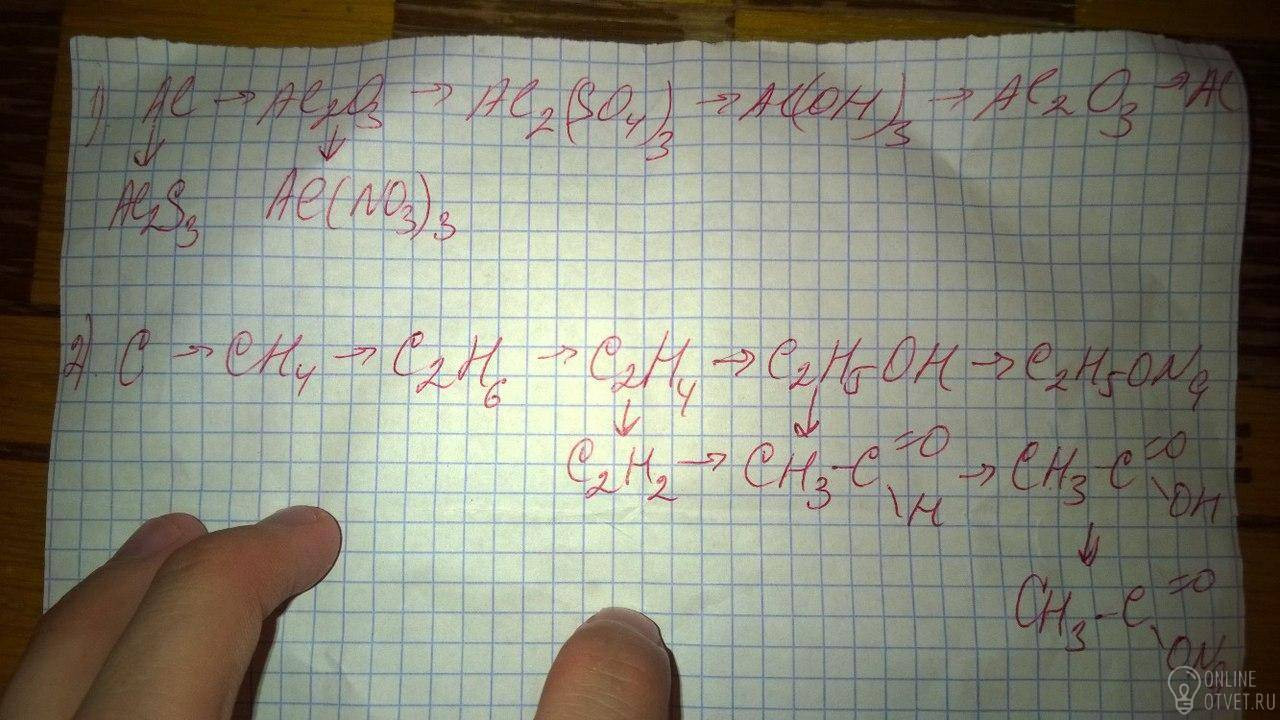 1). Al → Al2O3 → Al2(SO4)3 → Al(OH)3 → Al2O3 → Al
↓ ↓
Al2S3 Al(NO3)3
2). C → CH4 → C2H6 → C2H4 → C2H5OH → C2H5ONa
↓ ↓
C2H2 → CH3-C=O\H → CH3-C=O\OH
↓
CH3-C=O\ONa
ONLINE
OTVET.RU